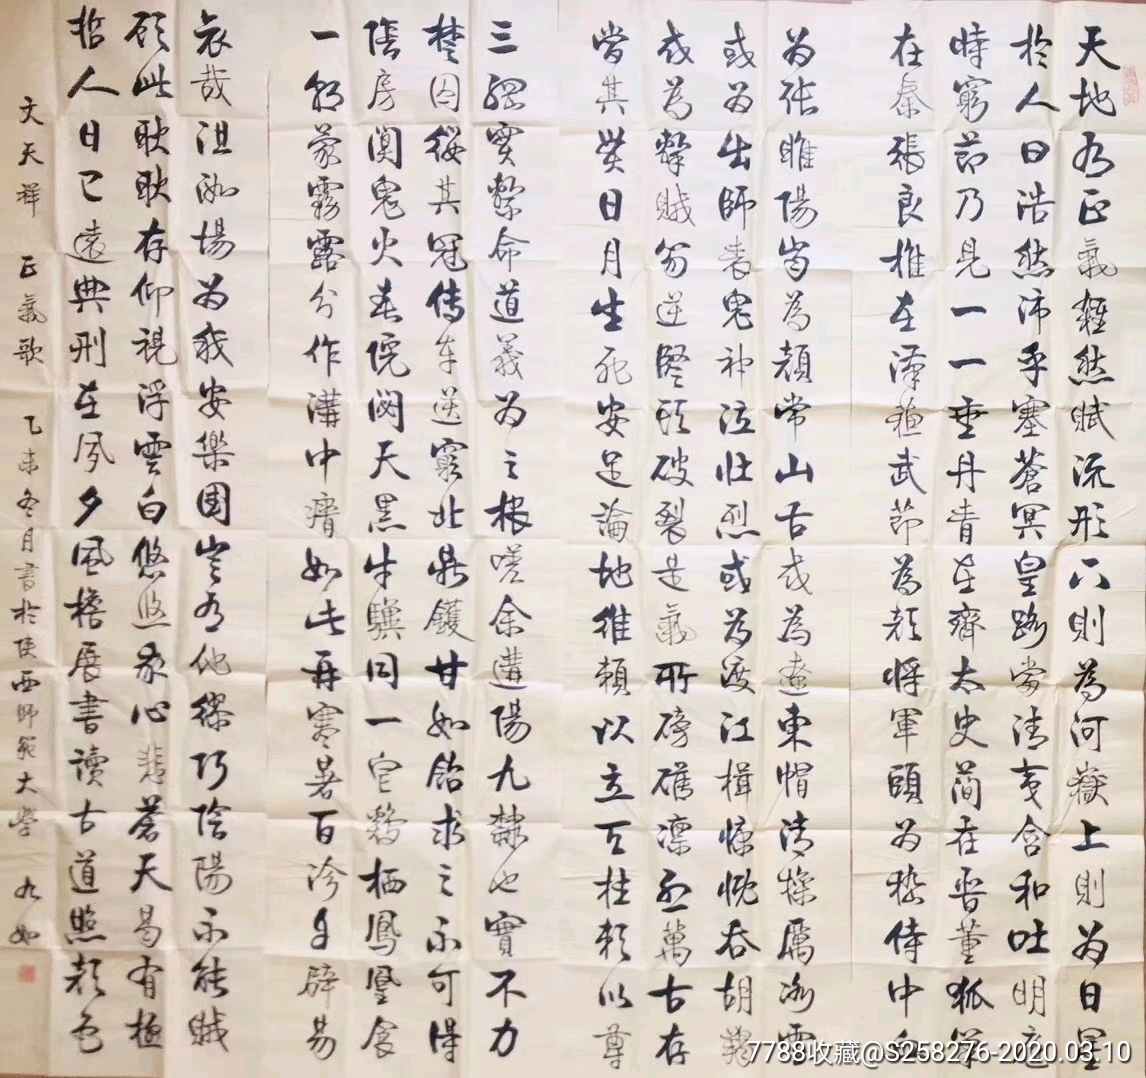 天地有正氣雜然賦流形下則為河嶽上則為日星
於人曰浩然沛乎塞蒼冥皇路當清夷含和吐明庭
時窮節乃見一一垂丹青在齊太史簡在晋董狐筆
在秦張良椎在漢蘇武節為將軍頭為嵇侍中血
为張睢陽齒為顏常山舌或為遼東帽清操厲冰雪
或为出師表鬼神泣壯烈或为渡江楫慷慨吞胡羯
或為擊賊笏逆豎頭破裂是氣所磅礴凜烈萬古存
當其貫日月生死安足論地維賴以立天柱賴以尊
三綱實繫命道義为之根嗟余遘陽九隸也實不力
楚囚纓其冠傳车送窮北鼎鑊甘如飴求之不可得
陰房闃鬼火春院閟天黑牛驥同一皂雞栖鳳凰食
一朝蒙霧露分作溝中瘠如此再寒暑百沴自辟易
哀哉沮洳場为我安樂國豈有他繆巧陰陽不能賊
顧此耿耿存仰視浮雲白悠悠我心悲蒼天曷有極
哲人日已遠典刑在夙夕風檐展書讀古道照顏色
文天祥 正氣歌 乙未冬月書於陝西師範大學 九如
7788收藏@S258276-2020.03.10